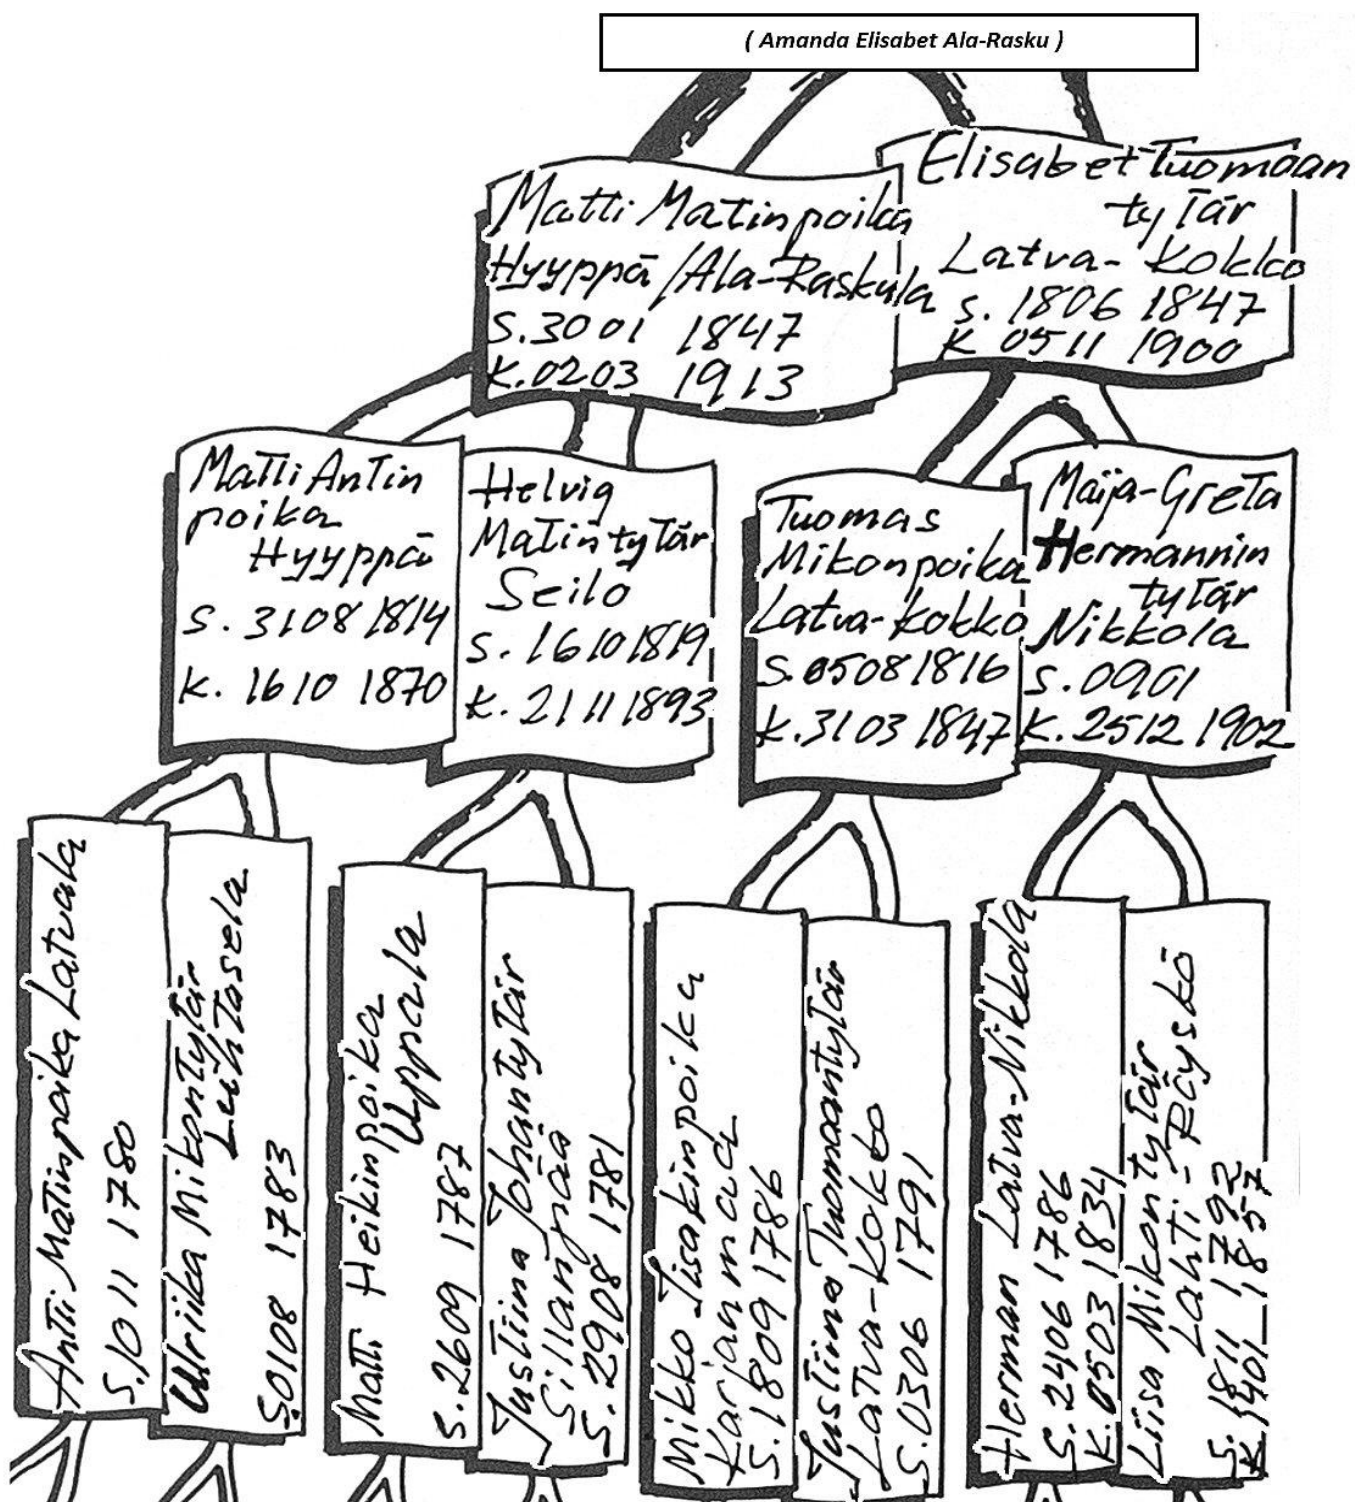 ( Amanda Elisabet Ala-Rasku )
Matti Matinpoika
Hyyppä/Ala-Raskula
s.3001 1847
k.0203 1913
Elisabet Tuomaan
tytär
Latva-Kokko
s. 1806 1847
k 0511 1900
Matti Antin
poika
Hyyppä
s. 3108 1814
k. 1610 1870
Helvig
Matintytär
Seilo
s. 1610 1819
k. 2111 1893
Tuomas
Mikonpoika
Latva-Kokko
s.0508 1816
k.3103 1847
Maija-Greta
Hermannin
tytär
Nikkola
s.0901
k.2512 1902
Antti Matinpoika Latvala
s.1011 1780
Ulriika Mikontytär
Luhtasela
s.0108 1783
Matti Heikinpoika
Uppala
s.2609 1787
Justiina Johantytär
Sillanpää
s.2908 1781
Mikko Iisakinpoika
Karjanmaa
s.1809 1786
Justiina Tuomaantytär
Latva-Kokko
s.0306 1791
Herman Latva-Nikkola
s.2406 1786
k.0503 1834
Liisa Mikontytär
Lahti-Räyskö
s.1811 1792
k.1401 1857